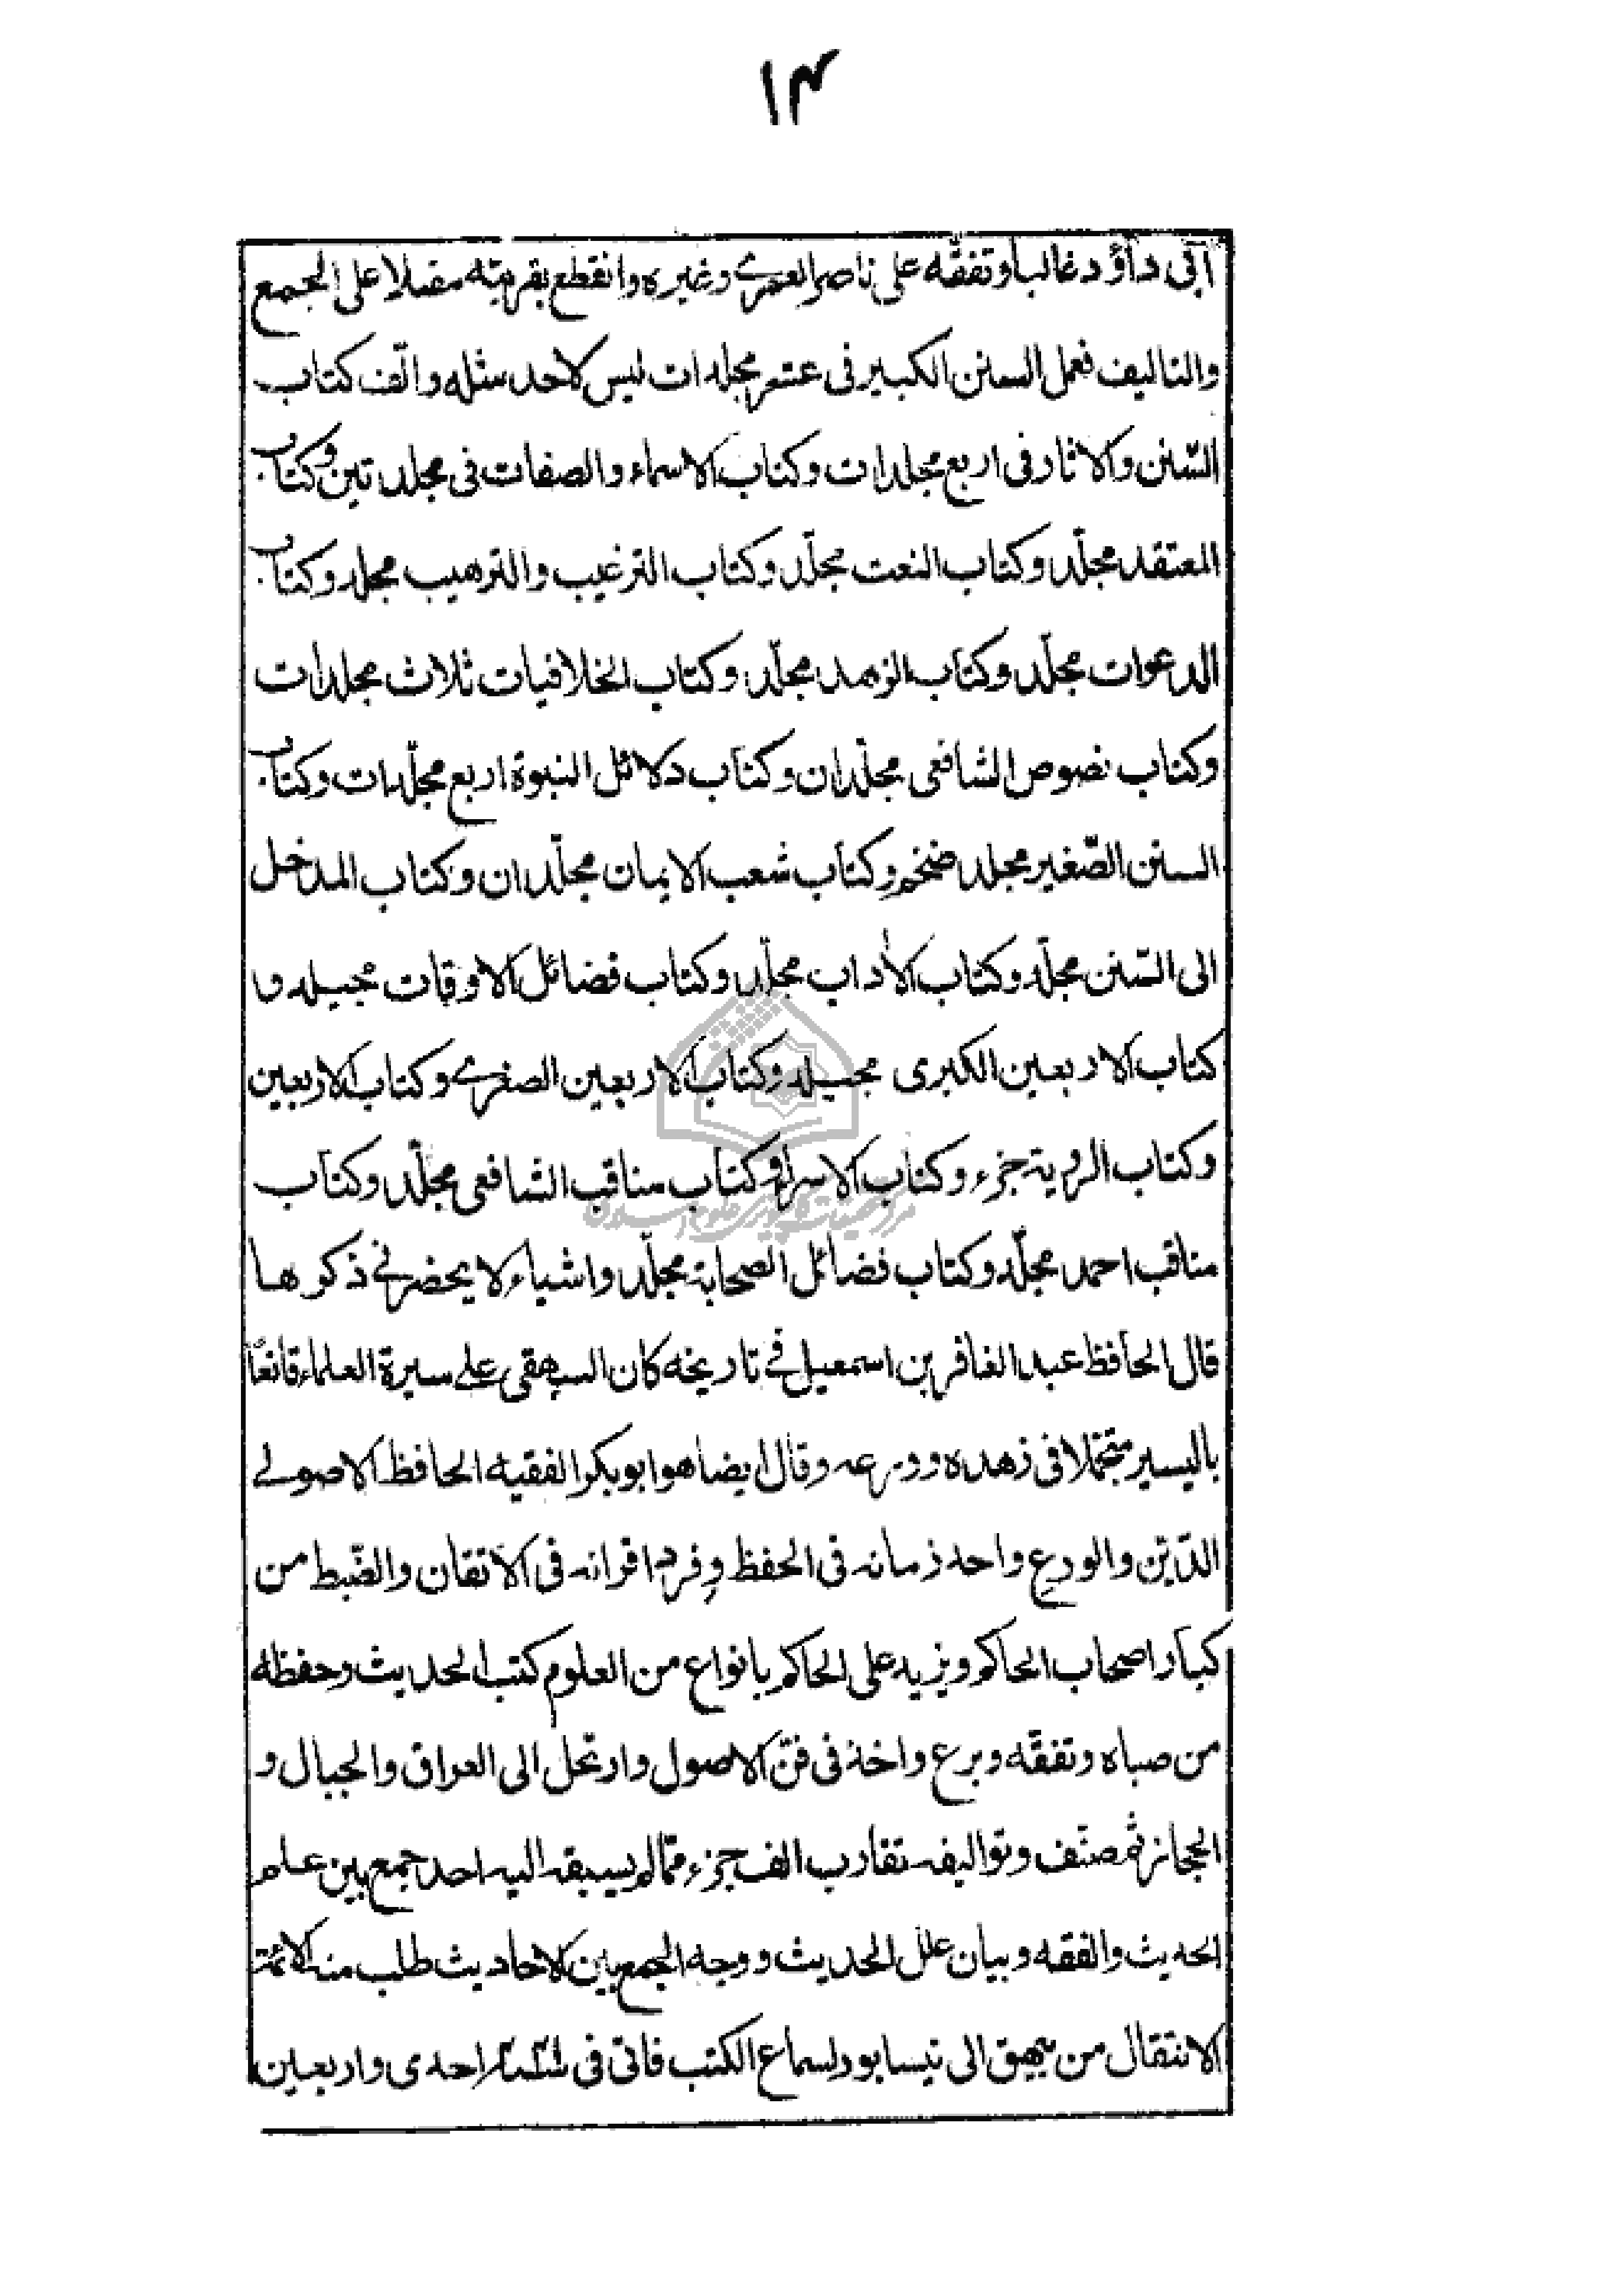 ١٣
ابى داؤد غالبا وتفقّه على ناصر العمرى وغيره وانقطع بقريته مقبلا على الجمع
والتاليف فعمل السنن الكبير فى عشر مجلدات ليس لاحد مثله والّف كتاب
السّنن والاثار فى اربع مجلدات وكتاب الاسماء والصفات فى مجلدتين وكتاب
المعتقد مجلّد وكتاب النعت مجلّد وكتاب الترغيب والترهيب مجلد وكتاب
الدعوات مجلّد وكتاب الزهد مجلّد وكتاب الخلافيات ثلاث مجلدات
وكتاب نصوص الشافعى مجلّدان وكتاب دلائل النبوة اربع مجلّدات وكتاب
السنن الصّغير مجلد ضخم وكتاب شعب الايمان مجلّدان وكتاب المدخل
الى السّنن مجلّد وكتاب الأداب مجلّد وكتاب فضائل الاوقات مجيلد و
كتاب الاربعين الكبرى مجيلد وكتاب الاربعين الصغرى وكتاب الاربعين
وكتاب الروية جزء وكتاب الاسراء وكتاب مناقب الشافعى مجلّد وكتاب
مناقب احمد مجلّد وكتاب فضائل الصحابة مجلّد واشياء لا يحضرنى ذكرها
قال الحافظ عبد الغافر بن اسمعيل فى تاريخه كان البيهقى على سيرة العلماء قانعًا
باليسير متجملا فى زهده وورعه وقال ايضا هو ابو بكر الفقيه الحافظ الاصولى
الدّيّن والورع واحد زمانه فى الحفظ وفرد اقرانه فى الاتقان والضّبط من
كبار اصحاب الحاكم ويزيد على الحاكم بانواع من العلوم كتب الحديث وحفظه
من صباه وتفقّه وبرع واخذ فى فنّ الاصول وارتحل الى العراق والجبال و
الحجاز ثم صنّف وتواليفه تقارب الف جزء ممّا لم يسبقه اليه احد جمع بين علم
الحديث والفقه وبيان علل الحديث ووجه الجمع بين الاحاديث طلب منه الائمة
الانتقال من بيهق الى نيسابور لسماع الكتب فاتى فى احدى واربعين